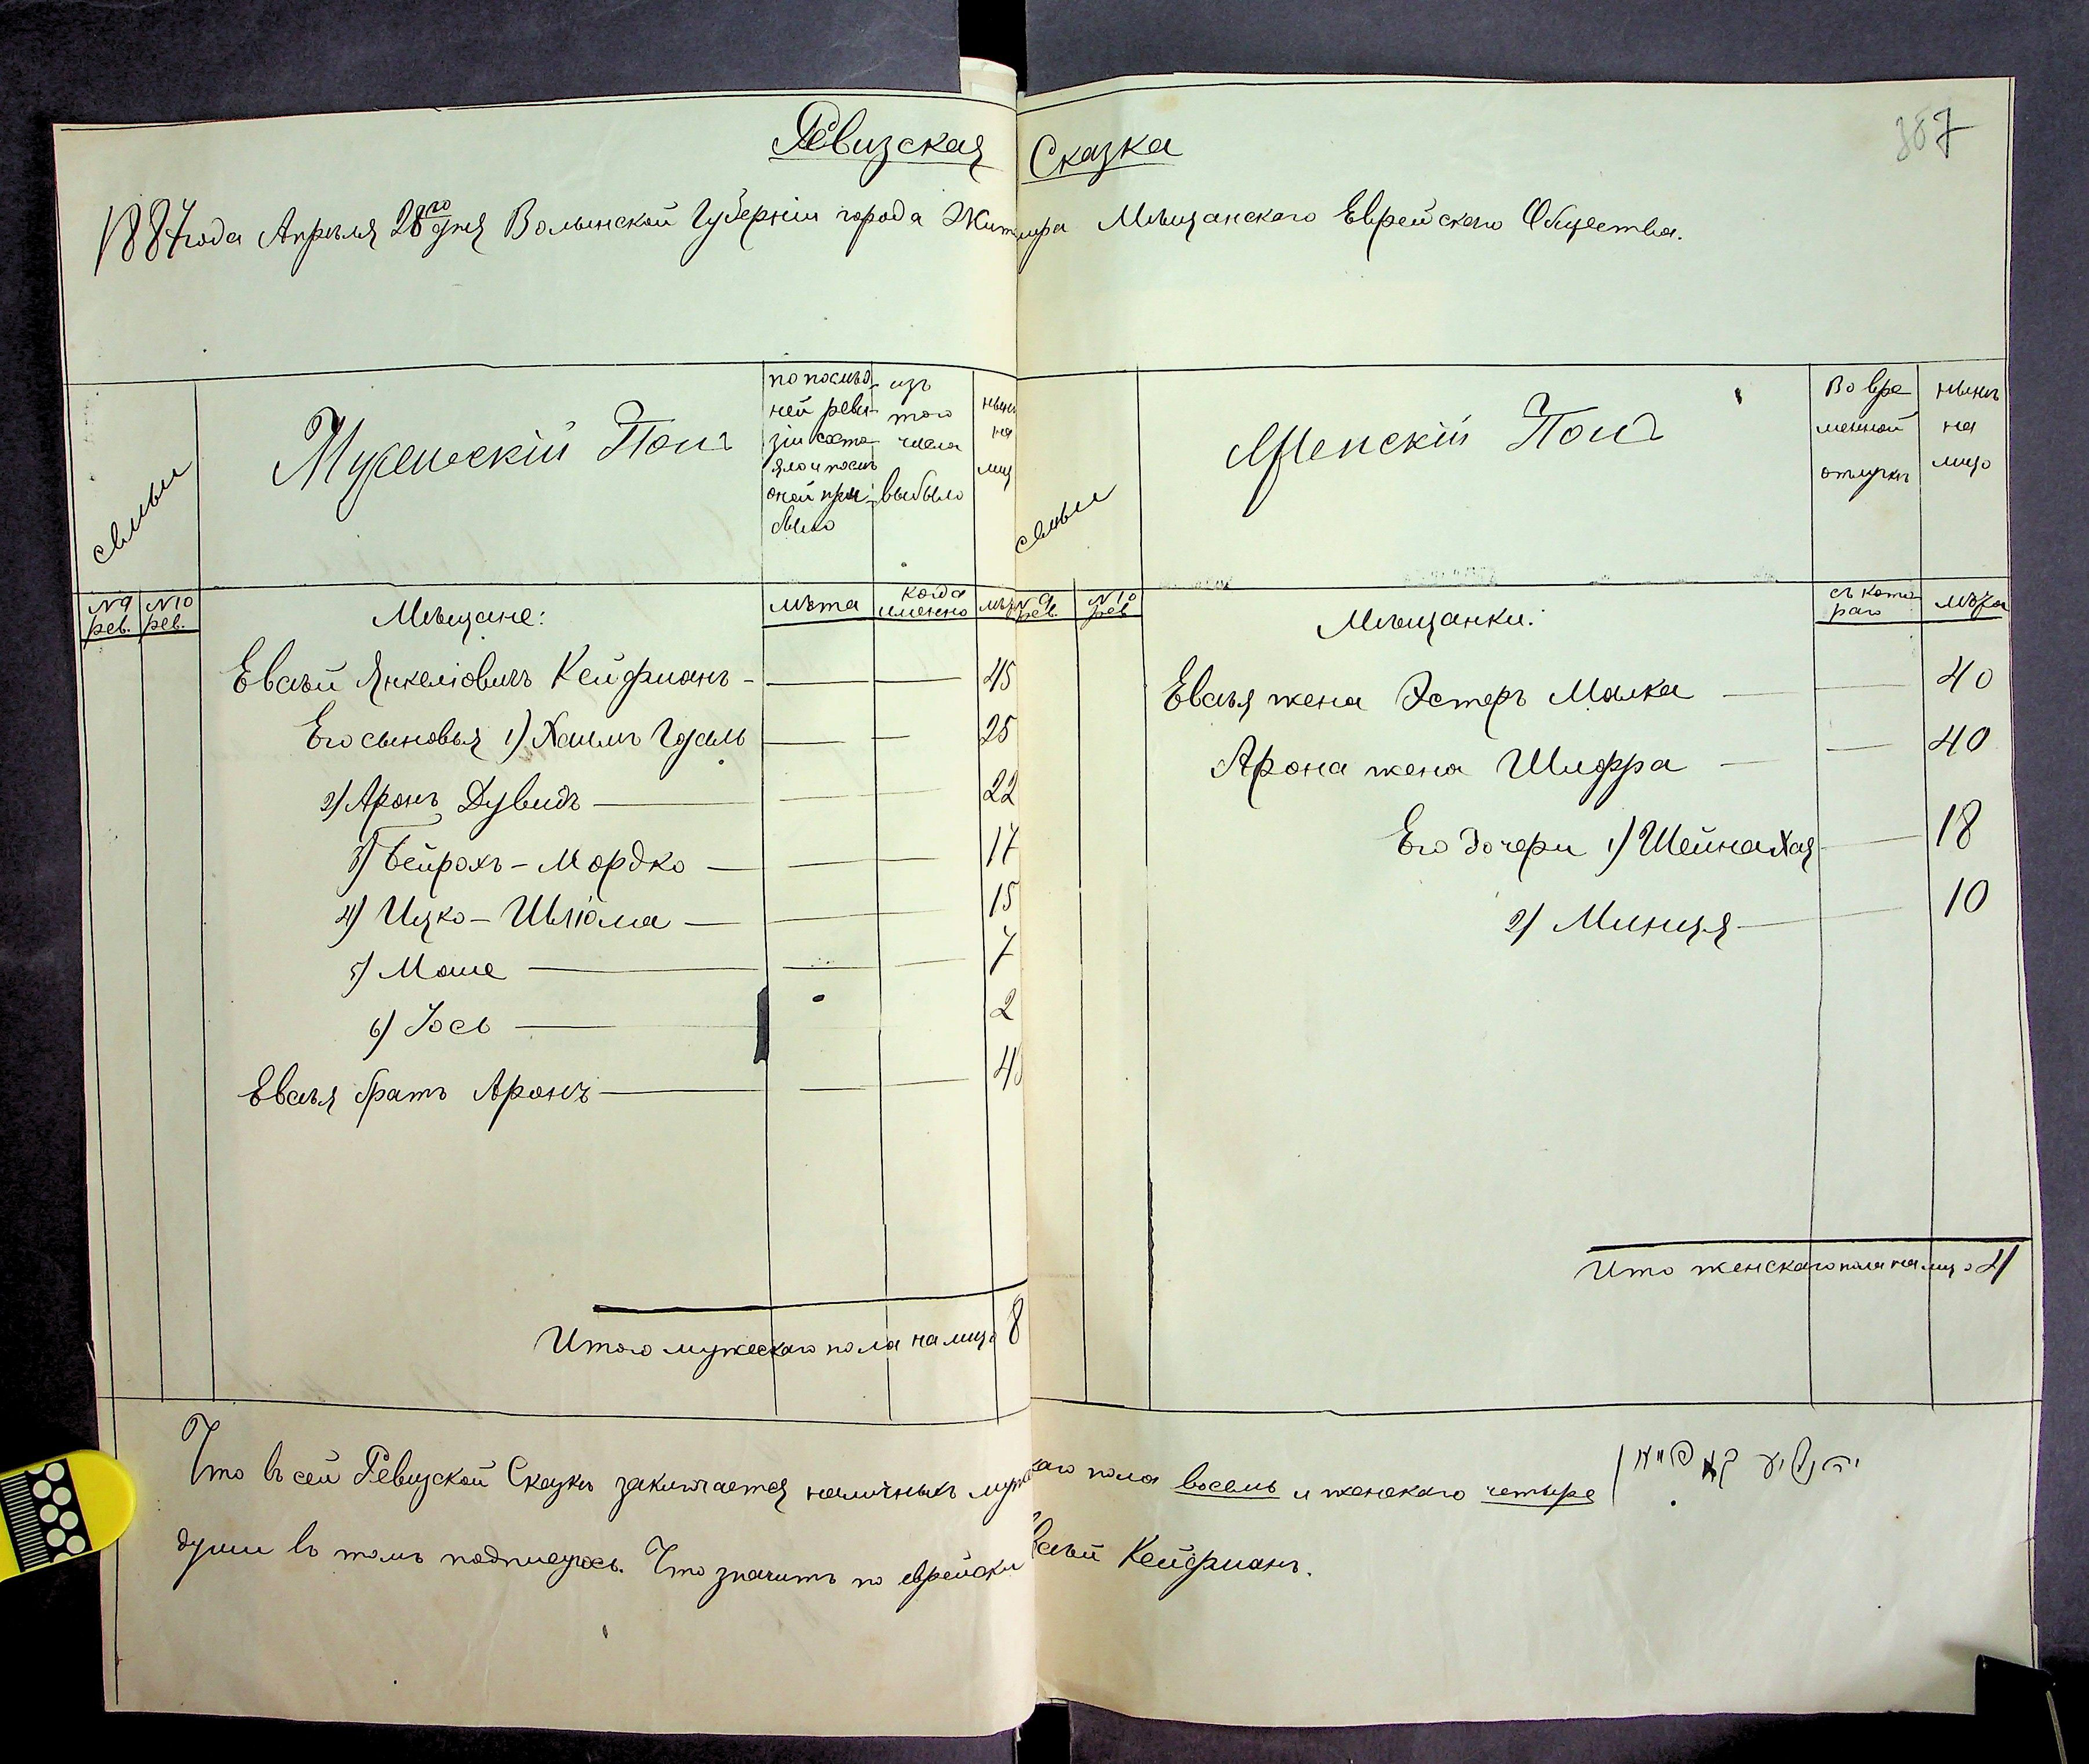 387
Ревизская Сказка
1887 года Апрѣля 28го дня Волынской Губерніи города Житомира Мѣщанскаго Еврейскаго Общества.
семьи
Мужескій Полъ
по послѣд-
ней реви-
зіи состо-
яло и послѣ
оной при-
было
изъ
того
числа
выбыло
нынѣ
на
лицо
№9 рев.
№10 рев.
Мѣщане:
лѣта
когда именно
лѣта
Евсѣй Янкеліовичъ Кейфманъ - 45
Его сыновья 1) Хаимъ Гдаль 25
2) Аронъ Дувидъ 22
3) Бейрохъ - Мордко 17
4) Ицко - Шліома 15
5) Моше 7
6) Іось 2
Евсѣя братъ Аронъ 4
Итого мужескаго пола на лицо 8
семьи
Женскій Полъ
Во вре
менной
отлучкѣ
нынѣ
на
лицо
№9 рев.
№10 рев
Мѣщанки:
съ кото
раго
лѣта
Евсѣя жена Эстеръ Малка 40
Арона жена Шифра 40
Его дочери 1) Шейна Хая 18
2) Минця 10
Итого женскаго пола на лицо 4
Что въ сей Ревизской Сказкѣ заключается наличныхъ мужескаго пола восемь и женскаго четыре
души въ томъ подписуюсь. Что значитъ по еврейски Евсѣй Кейфманъ.